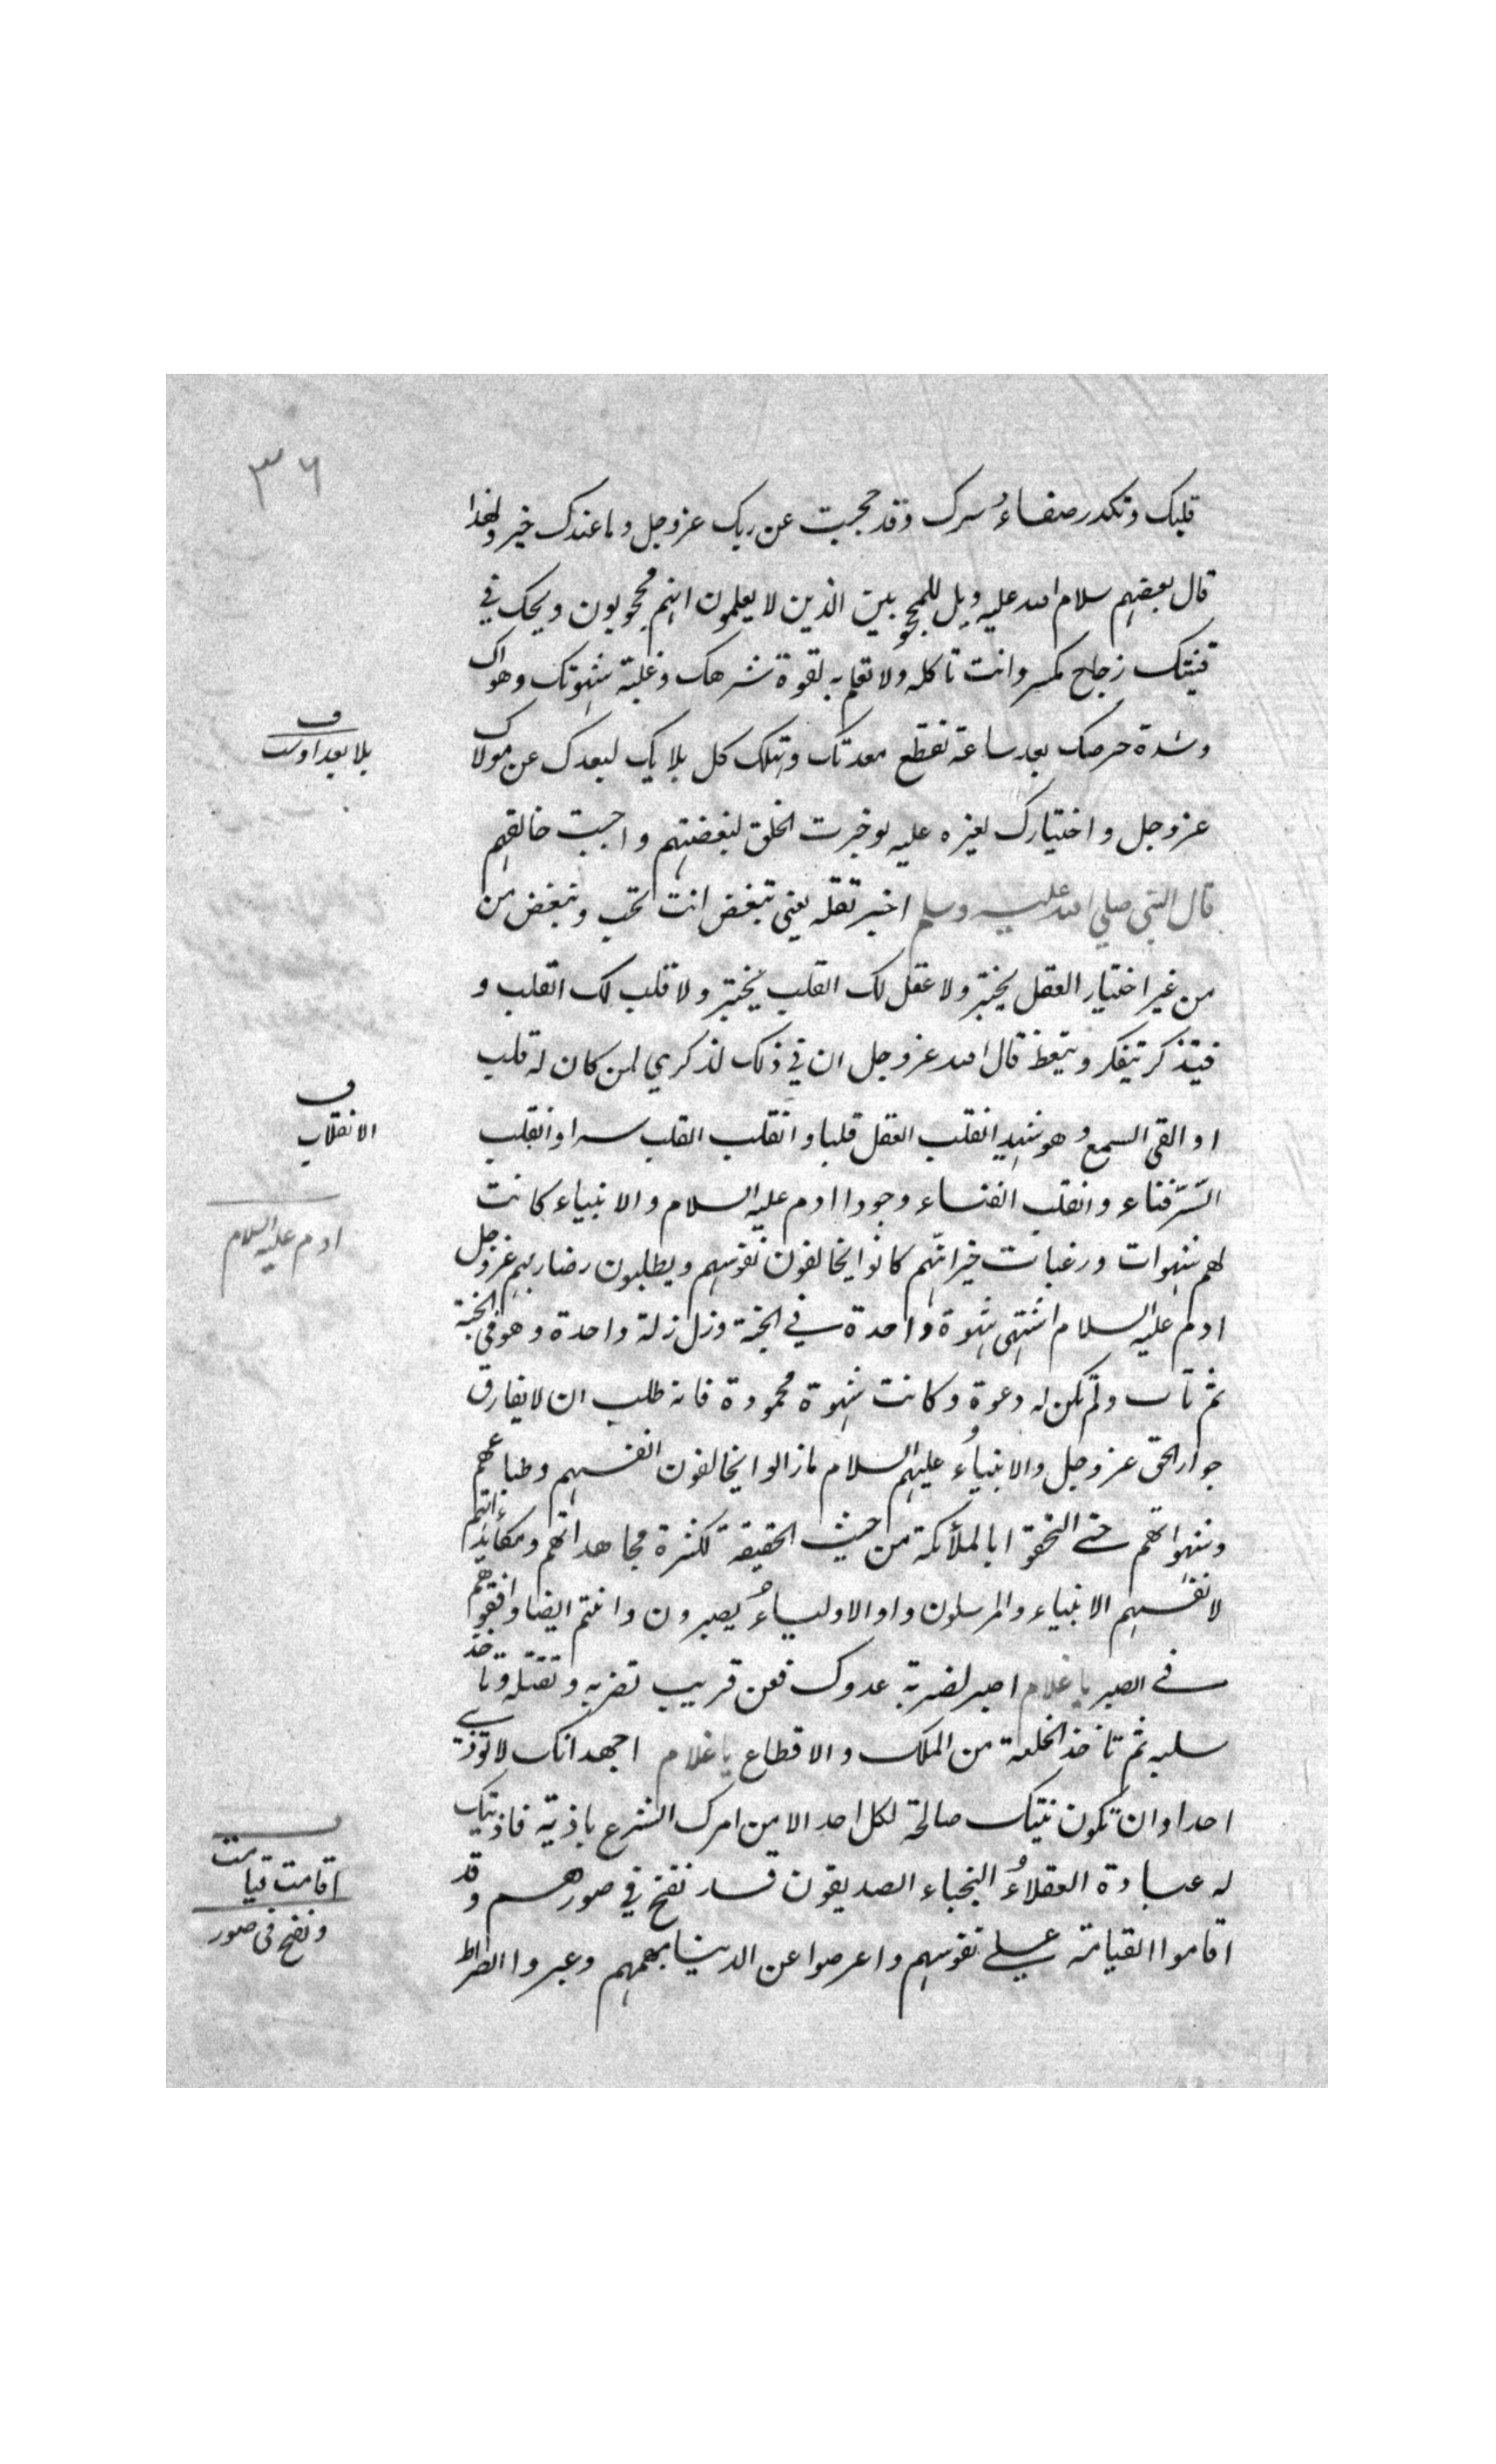 ٣٦
قلبك وتكدر صفاءُ سرك وقد حجبت عن ربك عزوجل وما عندك خير ولهذا
قال بعضهم سلام الله عليه ويل للمحجوبين الذين لا يعلمون انهم محجوبون ويحك في
زجاج مكسر وانت تاكله ولا تعلم به لقوة شرهك وغلبة شهوتك وهواك
وشدة حرصك بعد ساعة تقطع معدتك وتهلك كل بلايك لبعدك عن مولاك
ف
بلا بعد اوست
عزوجل واختيارك لغيره عليه لو خبرت الخلق لبغضتهم واحببت خالقهم
قال النبي صلي الله عليه وسلم اخبر تقله يعني تبغض انت تحب وتبغض من
من غير اختيار العقل يختبر ولا عقل لك القلب يختبر ولا قلب لك القلب و
فيتذكر تيفكر ويتعظ قال الله عزوجل ان في ذلك لذكري لمن كان له قلب
او القي السمع وهو شهيد انقلب العقل قلبا وانقلب القلب سرا وانقلب
ف
الانقلاب
السّر فناء وانقلب الفناء وجودا ادم عليه السلام والانبياء كانت
ادم عليه السلام
لهم شهوات ورغبات خير انهم كانوا يخالفون نفوسهم ويطلبون رضا ربهم عزوجل
ادم عليه السلام اشتهى شهوة واحدة في الجنة وزل زلة واحدة وهو في الجنة
ثم تاب ولم تكن له دعوة وكانت شهوة محمودة فانه طلب ان لا يفارق
جوار الحق عزوجل والانبياءُ عليهم السلام مازالوا يخالفون انفسهم وطباعهم
وشهواتهم حتى التحقوا بالملأئكة من حيث الحقيقة لكثرة مجاهداتهم ومكأبداتهم
لانفسهم الانبياء والمرسلون واو الاولياءُ يصبرون وانتم ايضا وافقوهم
في الصبر ياغلام اصبر لضربة عدوك فعن قريب تضربه وتقتله وتاخذ
سلبه ثم تأخذ الخلعة من الملك والاقطاع ياغلام اجهد انك لا توذي
احدا وان تكون نيتك صالحة لكل احد الا من امرك الشرع باذيته فاذيتك
له عبادة العقلاءُ النجباء الصديقون قد نفخ في صورهم وقد
ف
اقامت قيامت
اقاموا القيامة علي نفوسهم واعرضوا عن الدنيا بهممهم وعبروا الصراط
ونفخ في صور